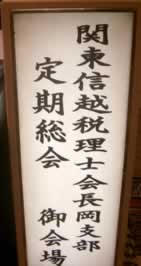 関東信越税理士会長岡支部
定期総会
御会場